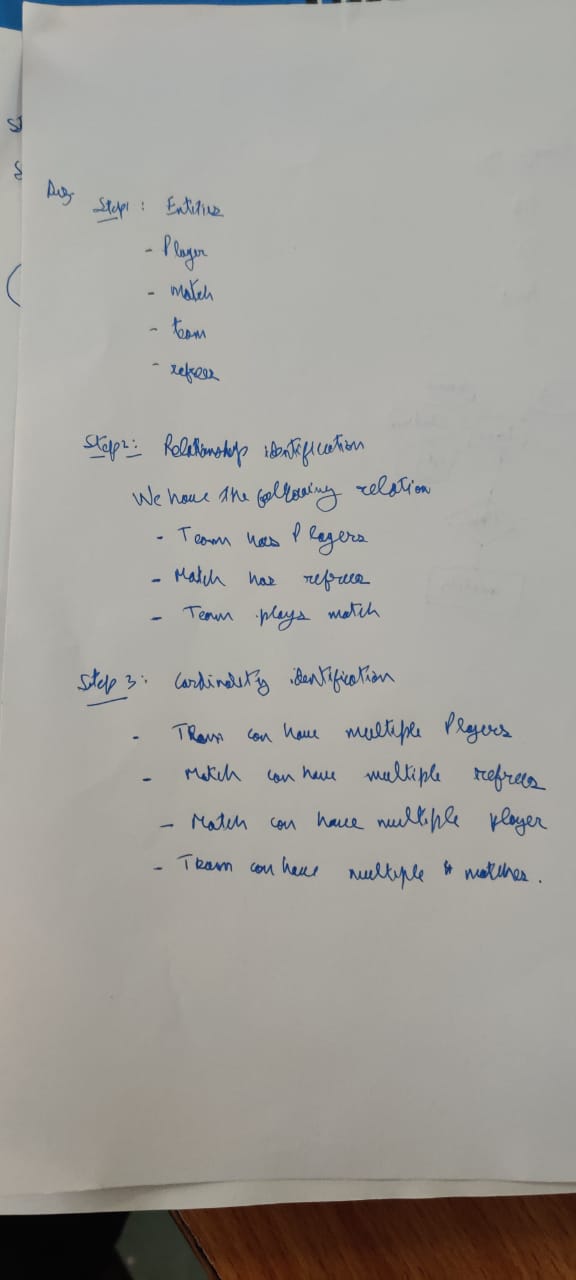 Ans
Step1 : Entities
- Player
- Match
- team
- refrees
Step2: Relationship identification
We have the following relation
- Team has Players
- Match has refrees
- Team plays match
Step 3: Cardinality identification
- Team can have multiple Players
- Match can have multiple refrees
- Match can have multiple player
- Team can have multiple matches.